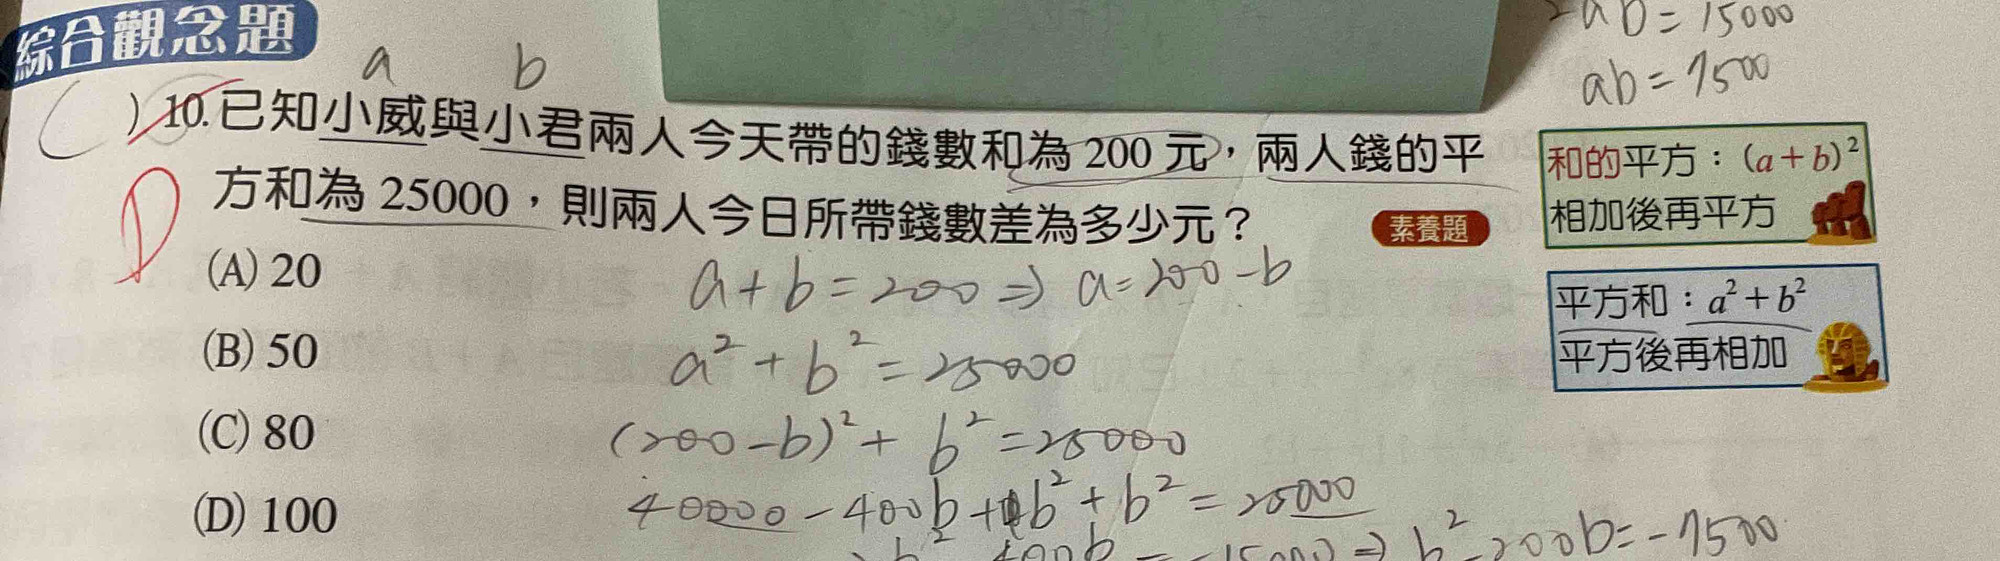 綜合觀念題
a b
2ab=15000
ab=7500
( ) 10. 已知小威與小君兩人今天帶的錢數和為 200 元，兩人錢的平
方和為 25000，則兩人今日所帶錢數差為多少元？
素養題
D
(A) 20
(B) 50
(C) 80
(D) 100
和的平方：(a+b)²
相加後再平方
平方和：a²+b²
平方後再相加
a+b=200⇒a=200-b
a²+b²=25000
(200-b)²+b²=25000
40000-400b+b²+b²=25000
⇒b²-200b=-7500